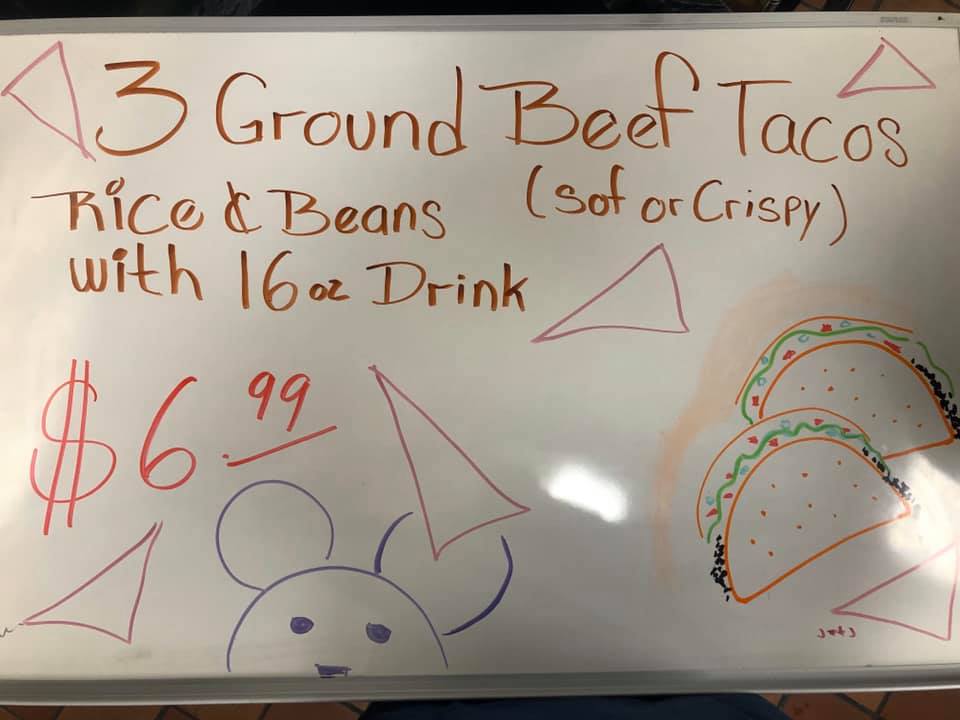 3 Ground Beef Tacos
Rice & Beans (sof or Crispy)
with 16 oz Drink
$6.99